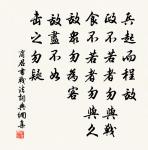 兵起而程敵
政不若者勿與戰
食不若者勿與久
敵眾勿為客
敵盡不如
擊之勿疑
商君書戰法詞典網集